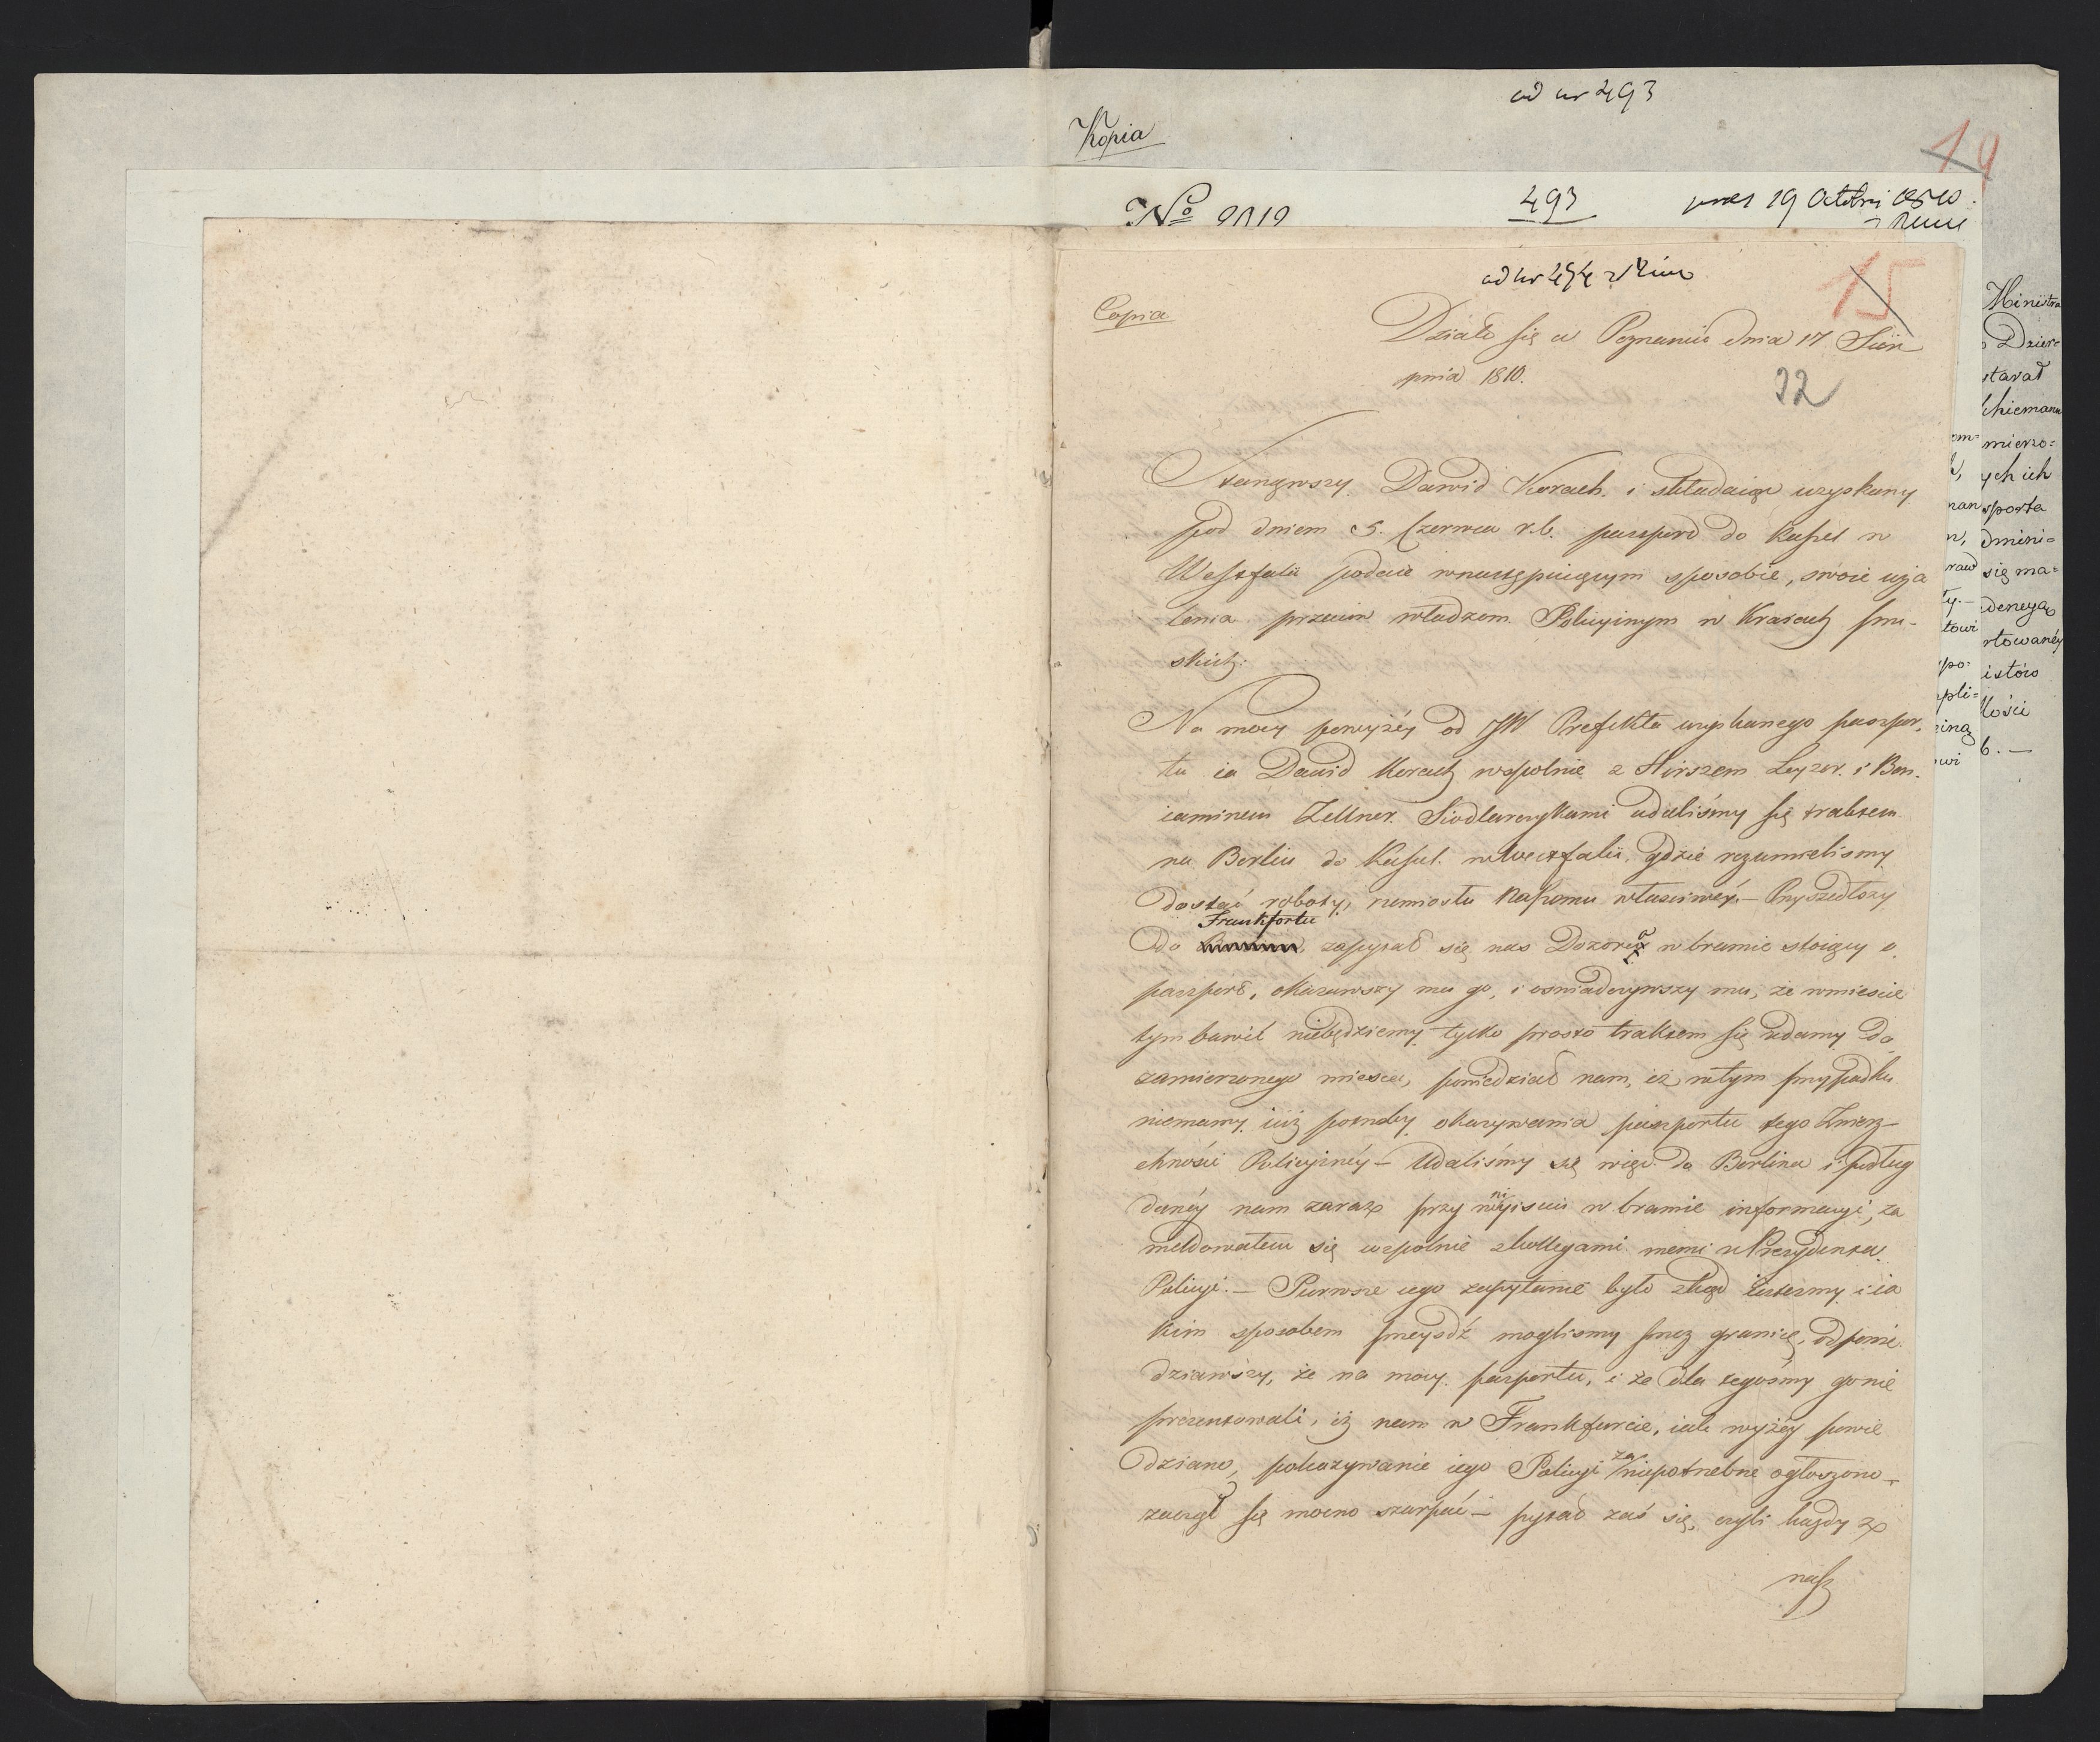 ad nr 493
Kopia
14
No 9819
493
pres 19 Octobri 1810
ad nr 494
15
Copia
Działo się w Poznaniu dnia 17 Sier
pnia 1810.
32
Stanąwszy Dawid Korach i składaiąc uzyskany
pod dniem 5. Czerwca r.b. paszport do Kassel w
Westfalii podaie wnastępuiącym sposobie, swoie uża
lenia przeciw władzom Policyinym w Kraiach pru-
skich:
Na mocy powyżéy od JW Prefekta uzyskanego paszpor-
tu ia Dawid Korach wspolnie z Hirszem Leyzer i Ben-
iaminem Zellner Siodlarczykami udaliśmy się traktem
na Berlin do Kassel w Westfalii, gdzie rozumielismy
dostać roboty, rzemiosłu naszemu właściwéy. – Przyszedłszy
do Frankfortu zapytał się nas Dozorca w bramie stoiący o
paszport, okazawszy mu go, i oswiadczywszy mu, że wmieście
tym bawić niebędziemy tylko prosto traktem się udamy do
zamierzonego miesca, powiedział nam, iż wtym przypadku
niemamy iuż potrzeby okazywania paszportu tego Zwierz-
chności Policyinéy – Udaliśmy się więc do Berlina i podług
danéy nam zaraz przy wniyisciu w bramie informacyi, za
meldowałem się wspolnie z kollegami memi u Prezydenta
Policyi. – Pierwsze iego zapytanie było zkąd iestesmy i ia
kim sposobem przeyśdź moglismy przez granicę, odpowie
dziawszy, że na mocy paszportu, i że dla tegośmy go nie
prezentowali, iż nam w Frankfurcie, iak wyżéy powie
dziano, pokazywanie iego Policyi za niepotrzebne ogłoszono –
zaczął się mocno szarpać – pytał zaś się, czyli każdy z
nasz
Ministra
Dzier=
starał
chiemann
mierzo=
ych ich
sporta
dmini=
się ma=
denega
rtowanéy
istów
łości
b. –
em=
nan
n,
raw
ty. –
towi
po=
pli=
iną
wi